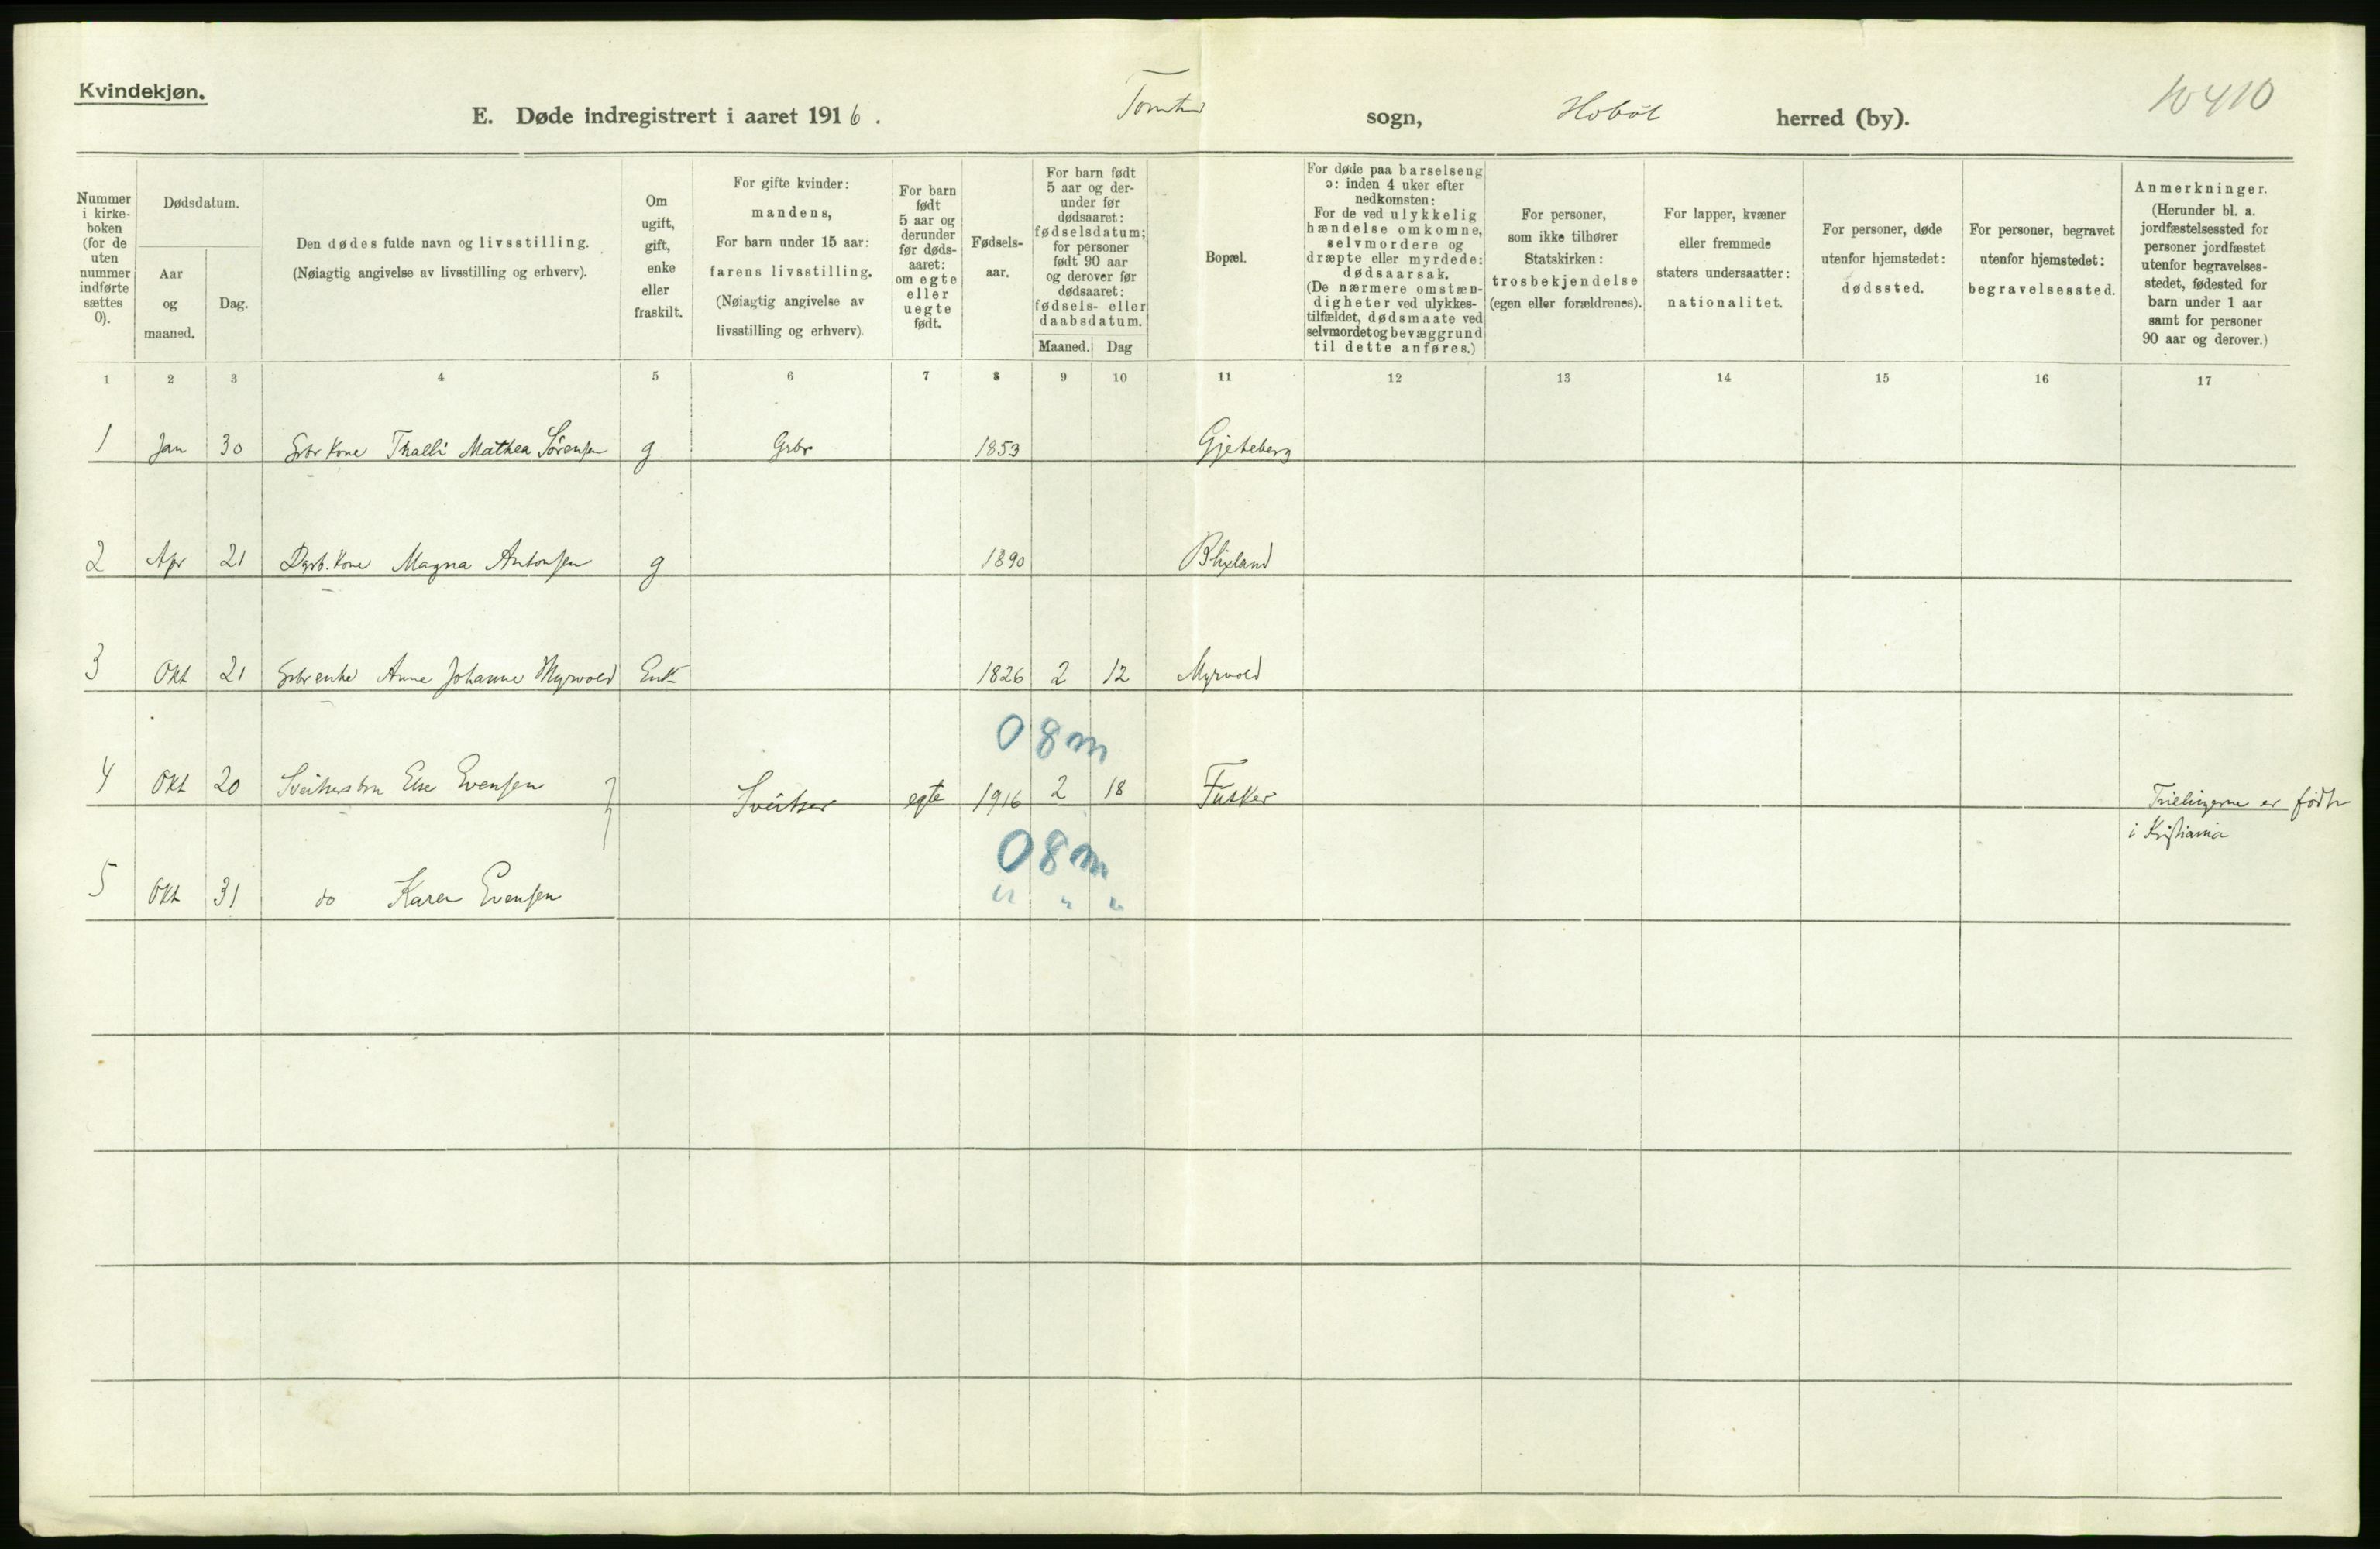 Kvindekjøn.
E. Døde indregistrert i aaret 1916. Tomter sogn, Hobøl herred (by). 10410
Nummer i kirke- boken (for de uten nummer indførte sættes 0).
Dødsdatum.
Aar og maaned.
Dag.
Den dødes fulde navn og livsstilling.
(Nøiagtig angivelse av livsstilling og erhverv).
Om ugift, gift, enke eller fraskilt.
For gifte kvinder: mandens,
For barn under 15 aar: farens livsstilling.
(Nøiagtig angivelse av livsstilling og erhverv).
For barn født 5 aar og derunder før døds- aaret: om egte eller uegte født.
Fødsels- aar.
For barn født 5 aar og der- under før dødsaaret: fødselsdatum; for personer født 90 aar og derover før dødsaaret: fødsels- eller daabsdatum.
Maaned. Dag
Bopæl.
For døde paa barselseng ɔ: inden 4 uker efter nedkomsten:
For de ved ulykkelig hændelse omkomne, selvmordere og dræpte eller myrdede: dødsaarsak.
(De nærmere omstæn- digheter ved ulykkes- tilfældet, dødsmaate ved selvmordet og bevæggrund til dette anføres.)
For personer, som ikke tilhører Statskirken: trosbekjendelse (egen eller forældrenes).
For lapper, kvæner eller fremmede staters undersaatter: nationalitet.
For personer, døde utenfor hjemstedet: dødssted.
For personer, begravet utenfor hjemstedet: begravelsessted.
Anmerkninger.
(Herunder bl. a. jordfæstelsessted for personer jordfæstet utenfor begravelses- stedet, fødested for barn under 1 aar samt for personer 90 aar og derover.)
1 2 3 4 5 6 7 8 9 10 11 12 13 14 15 16 17
1 Jan 30 Gbr kone Thalli Mathea Sörensen g Gbr 1853 Gjeteberg
2 Apr 21 kone Magna Antonsen g 1890 Blixland
3 Okt 21 Gbr enke Anne Johanne Myrvold Enk 1826 2 12 Myrvold
08m
4 Okt 20 Else Evensen Sveitser egte 1916 2 18 Fusker Trillingerne er född
i Kristiania
08m
5 Okt 31 do Karen Evensen " " "